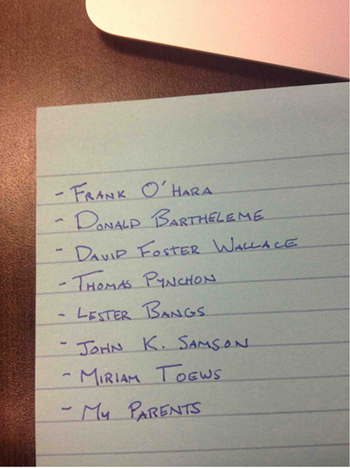 - FRANK O'HARA
- DONALD BARTHELEME
- DAVID FOSTER WALLACE
- THOMAS PYNCHON
- LESTER BANGS
- JOHN K. SAMSON
- MIRIAM TOEWS
- MY PARENTS